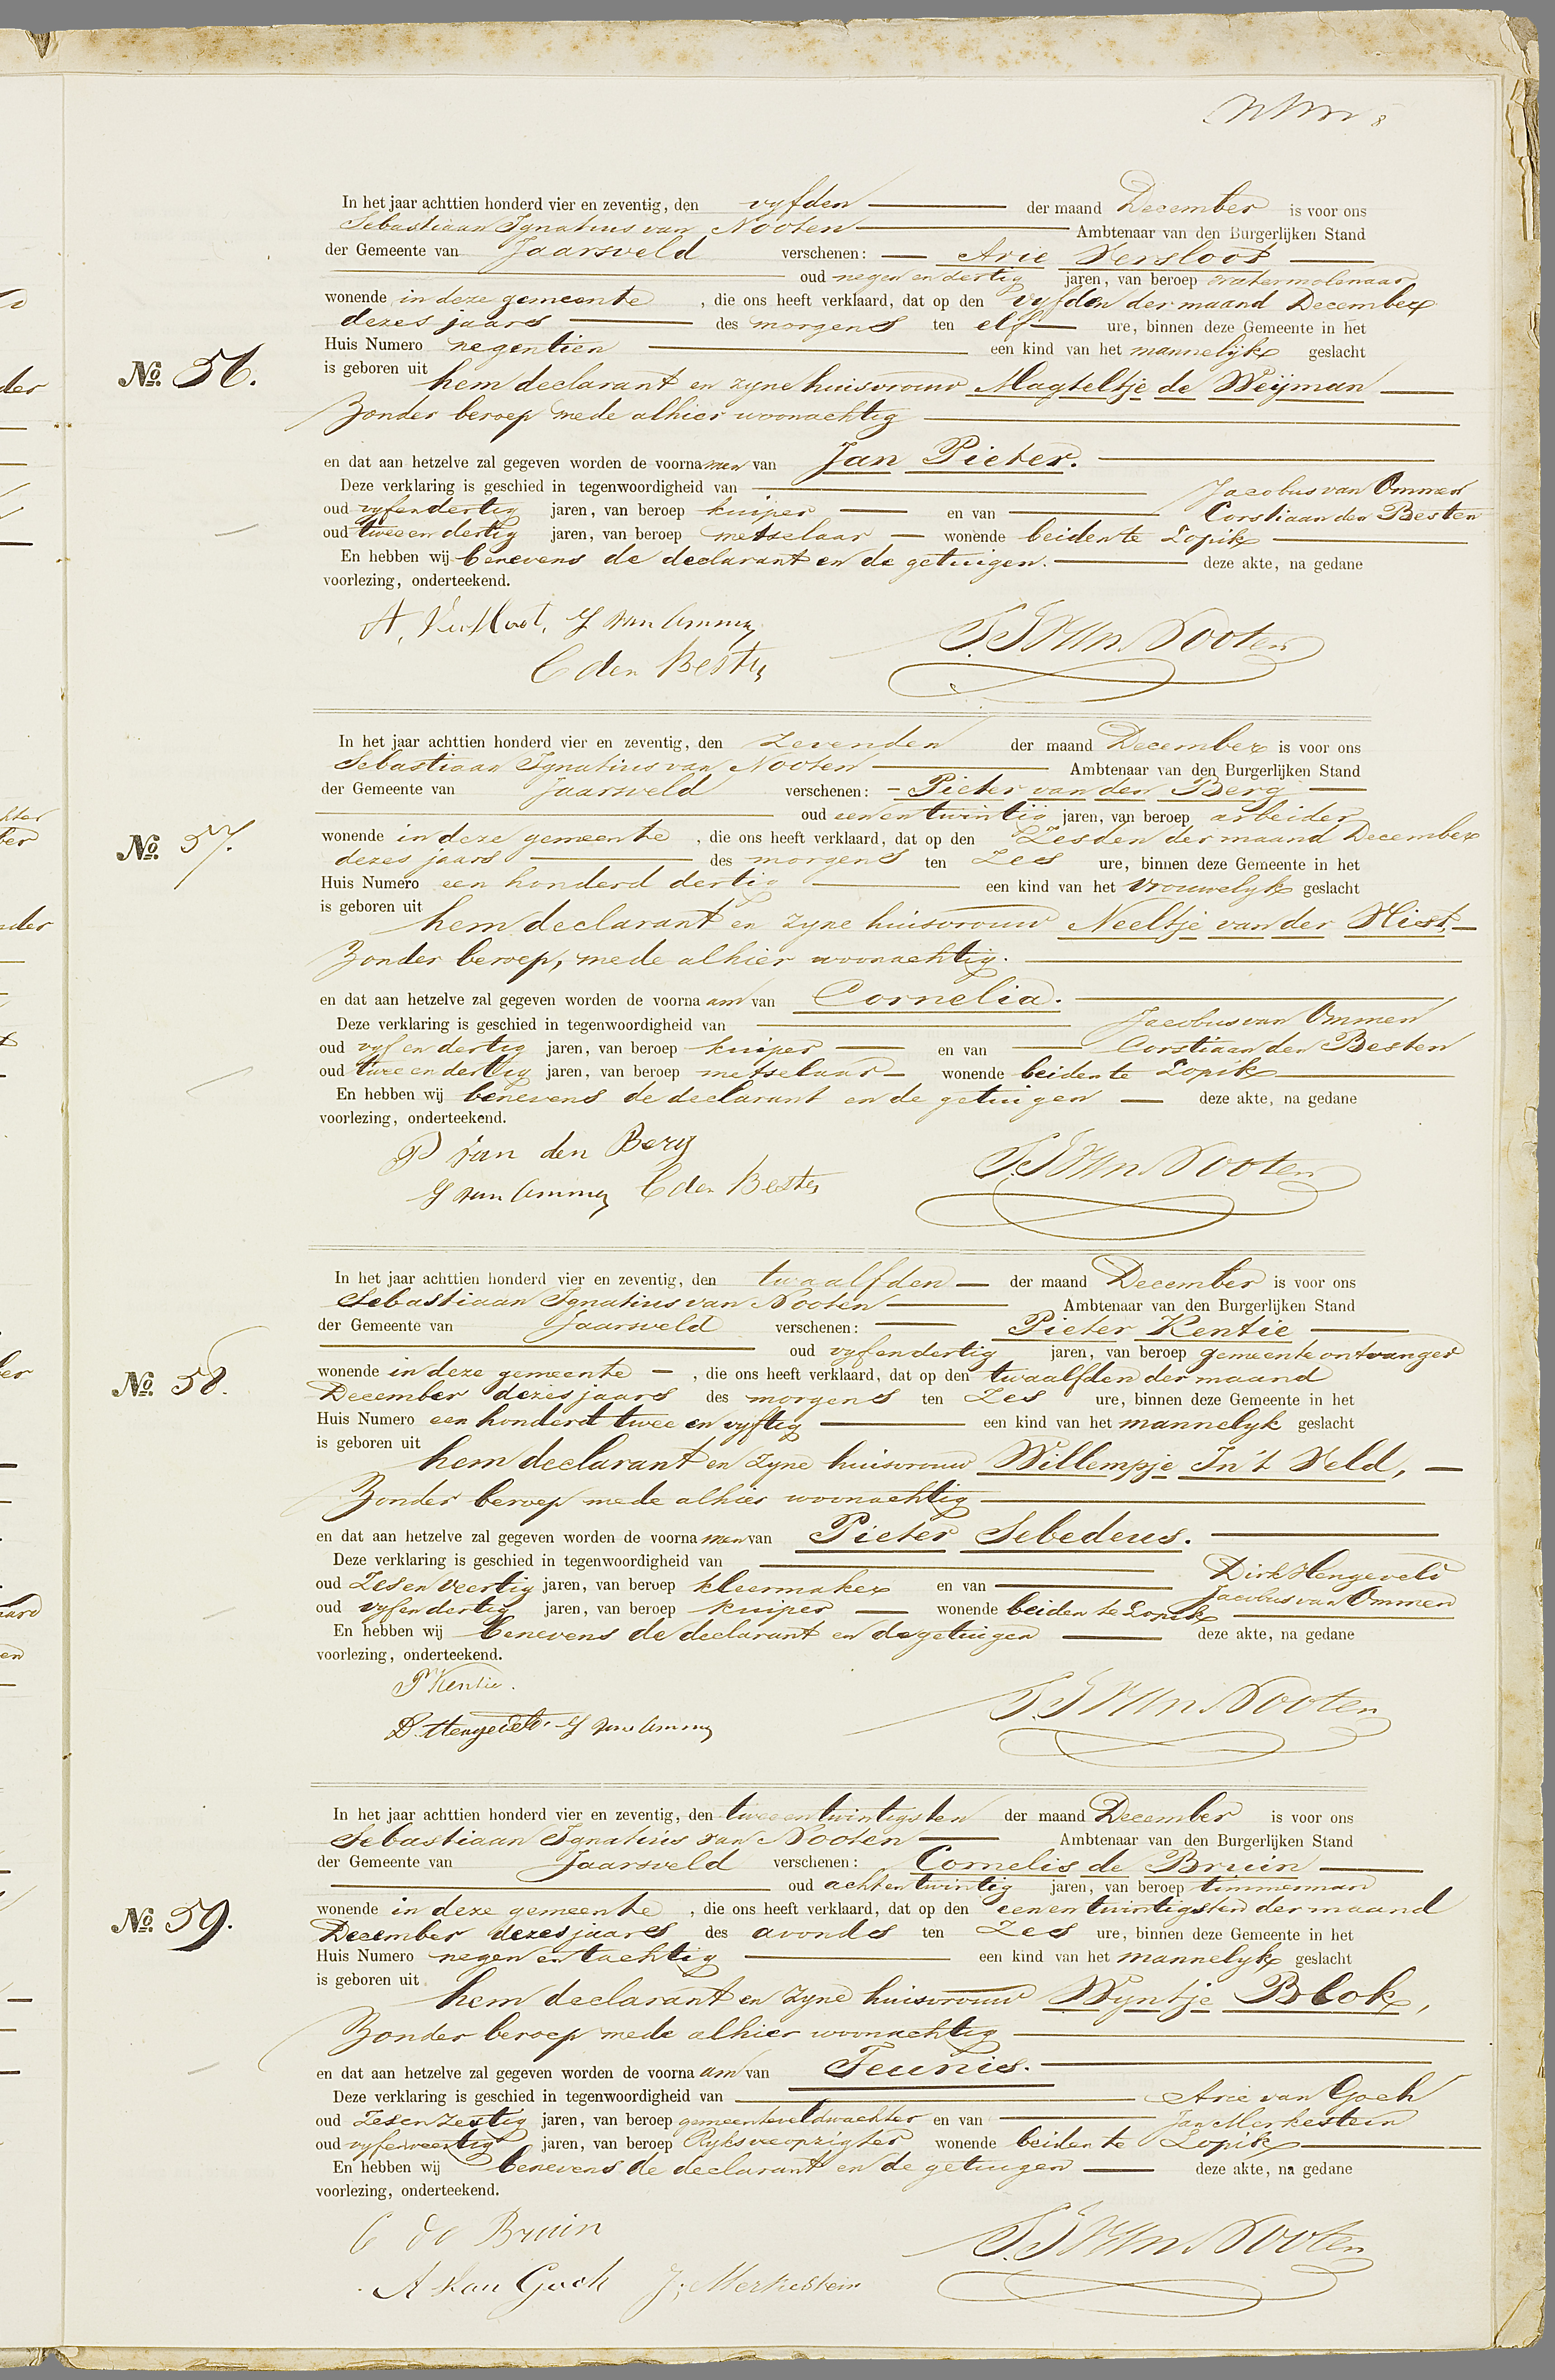 8
In het jaar achttien honderd vier en zeventig, den vyfden der maand December is voor ons
Sebastiaan Ignatius van Nooten Ambtenaar van den Burgerlijken Stand
der Gemeente van Jaarsveld verschenen: Arie Versloot
oud negen en dertig jaren, van beroep watermolenaar
wonende in deze gemeente , die ons heeft verklaard, dat op den vyfden der maand December
dezes jaars des morgens ten elf ure, binnen deze Gemeente in het
Huis Numero negentien een kind van het mannelijk geslacht
No. 56.
is geboren uit hem declarant en zyne huisvrouw Magteltje de Weijman
Zonder beroep mede alhier woonachtig
en dat aan hetzelve zal gegeven worden de voornamen van Jan Pieter.
Deze verklaring is geschied in tegenwoordigheid van Jacobus van Ommen
oud vyfendertig jaren, van beroep kuiper en van Corstiaan den Besten
oud twee en dertig jaren, van beroep metselaar wonende beiden te Lopik
En hebben wij benevens de declarant en de getuigen. deze akte, na gedane
voorlezing, onderteekend.
A, Versloot, J van Ommen
C den Besten
S. I. Van Nooten
In het jaar achttien honderd vier en zeventig, den zevenden der maand December is voor ons
Sebastiaan Ignatius van Nooten Ambtenaar van den Burgerlijken Stand
der Gemeente van Jaarsveld verschenen: Pieter van den Berg
oud eenentwintig jaren, van beroep arbeider
wonende in deze gemeente , die ons heeft verklaard, dat op den Zesden der maand December
No. 57.
dezes jaars des morgens ten Zes ure, binnen deze Gemeente in het
Huis Numero een honderd dertig een kind van het vrouwelyk geslacht
is geboren uit hem declarant en zyne huisvrouw Neeltje van der Hiest,
Zonder beroep, mede alhier woonachtig.
en dat aan hetzelve zal gegeven worden de voorna am van Cornelia.
Deze verklaring is geschied in tegenwoordigheid van Jacobus van Ommen
oud vyf en dertig jaren, van beroep kuiper en van Corstiaan den Besten
oud twee en dertig jaren, van beroep metselaar wonende beiden te Lopik
En hebben wij benevens de declarant en de getuigen deze akte, na gedane
voorlezing, onderteekend.
P van den Berg
J van Ommen C den Besten
S. I. Van Nooten
In het jaar achttien honderd vier en zeventig, den twaalfden der maand December is voor ons
Sebastiaan Ignatius van Nooten Ambtenaar van den Burgerlijken Stand
der Gemeente van Jaarsveld verschenen: Pieter Kentie
oud vyfendertig jaren, van beroep gemeente ontvanger
wonende in deze gemeente , die ons heeft verklaard, dat op den twaalfden der maand
No. 58.
December dezes jaars des morgens ten Zes ure, binnen deze Gemeente in het
Huis Numero een honderd twee en vyftig een kind van het mannelyk geslacht
is geboren uit hem declarant en zyne huisvrouw Willempje In 't Veld,
Zonder beroep mede alhier woonachtig
en dat aan hetzelve zal gegeven worden de voorna men van Pieter Sebedeus.
Deze verklaring is geschied in tegenwoordigheid van Dirk Hengeveld
oud Zesen veertig jaren, van beroep kleermaker en van Jacobus van Ommen
oud vyfendertig jaren, van beroep kuiper wonende beiden te Lopik
En hebben wij benevens de declarant en de getuigen deze akte, na gedane
voorlezing, onderteekend.
P Kentie.
D. Hengeveld. J van Ommen
S. I. Van Nooten
In het jaar achttien honderd vier en zeventig, den tweeentwintigsten der maand December is voor ons
Sebastiaan Ignatius van Nooten Ambtenaar van den Burgerlijken Stand
der Gemeente van Jaarsveld verschenen: Cornelis de Bruin
oud achtentwintig jaren, van beroep timmerman
wonende in deze gemeente , die ons heeft verklaard, dat op den eenentwintigsten der maand
No. 59.
December dezes jaars des avonds ten Zes ure, binnen deze Gemeente in het
Huis Numero negen en tachtig een kind van het mannelyk geslacht
is geboren uit hem declarant en zyne huisvrouw Wyntje Blok,
Zonder beroep mede alhier woonachtig
en dat aan hetzelve zal gegeven worden de voorna am van Teunis.
Deze verklaring is geschied in tegenwoordigheid van Arie van Goch
oud Zesen Zestig jaren, van beroep gemeenteveldwachter en van Jan Merkestein
oud vyfenveertig jaren, van beroep Ryksveeopzigter wonende beiden te Lopik
En hebben wij benevens de declarant en de getuigen deze akte, na gedane
voorlezing, onderteekend.
C de Bruin
A van Goch J. Merkestein
S. I. Van Nooten